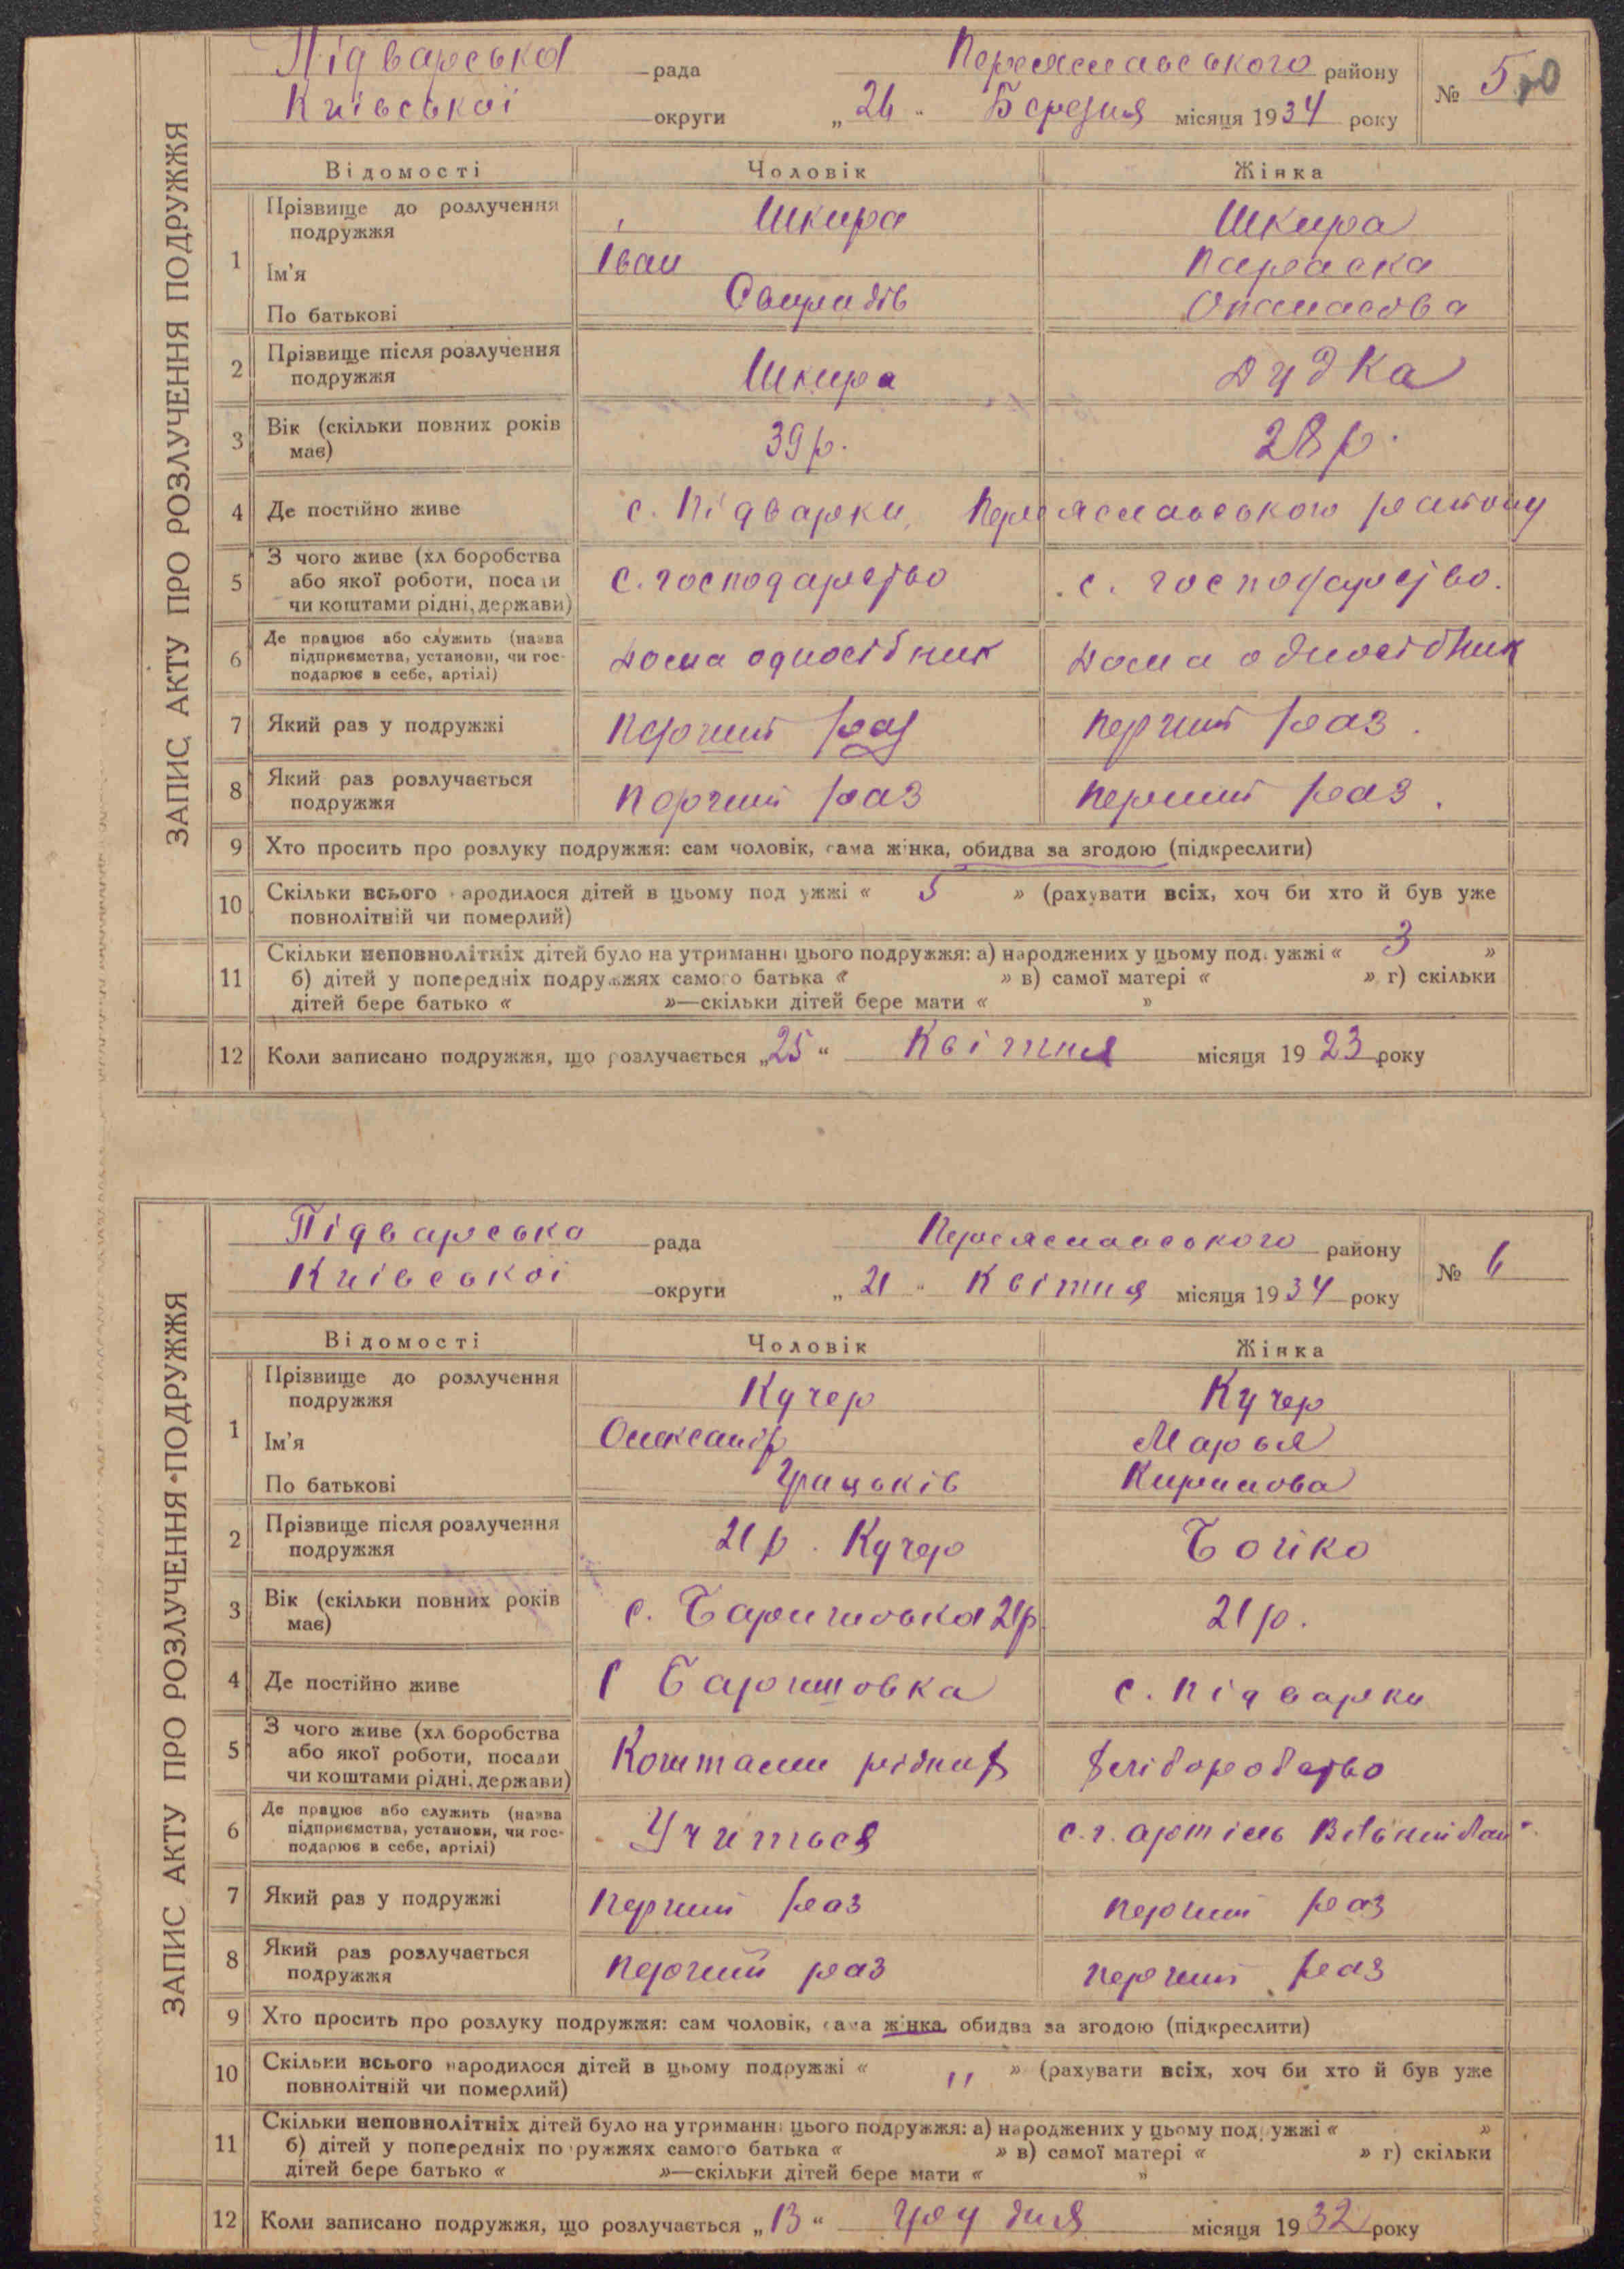 ЗАПИС АКТУ ПРО РОЗЛУЧЕННЯ ПОДРУЖЖЯ
Підварська рада Переяславського району № 5
Київської округи „ 26 “ Березня місяця 1934 року
Відомості Чоловік Жінка
1 Прізвище до розлучення подружжя Шкира Шкира
Ім'я Іван Параска
По батькові Свиридів Опанасова
2 Прізвище після розлучення подружжя Шкира Дудка
3 Вік (скільки повних років має) 39 р. 28 р.
4 Де постійно живе с. Підварки, Переяславського району
5 З чого живе (хл боробства або якої роботи, посади чи коштами рідні, держави) с. господарство с. господарство.
6 Де працює або служить (назва підприємства, установи, чи господарює в себе, артілі) дома односібник дома односібник
7 Який раз у подружжі перший раз перший раз.
8 Який раз розлучається подружжя перший раз перший раз.
9 Хто просить про розлуку подружжя: сам чоловік, сама жінка, обидва за згодою (підкреслити)
10 Скільки всього народилося дітей в цьому подружжі « 5 » (рахувати всіх, хоч би хто й був уже
повнолітній чи померлий)
11 Скільки неповнолітніх дітей було на утриманні цього подружжя: а) народжених у цьому подружжі « 3 »
б) дітей у попередніх подружжях самого батька « » в) самої матері « » г) скільки
дітей бере батько « »—скільки дітей бере мати « »
12 Коли записано подружжя, що розлучається „25“ Квітня місяця 1923 року
ЗАПИС АКТУ ПРО РОЗЛУЧЕННЯ ПОДРУЖЖЯ
Підварська рада Переяславського району № 6
Київської округи „ 21 “ Квітня місяця 1934 року
Відомості Чоловік Жінка
1 Прізвище до розлучення подружжя Кучер Кучер
Ім'я Олександр Марья
По батькові Грицьків Кирилова
2 Прізвище після розлучення подружжя 21 р. Кучер Бойко
3 Вік (скільки повних років має) с. Баришовка 21р 21 р.
4 Де постійно живе с Баришовка с. Підварки
5 З чого живе (хл боробства або якої роботи, посади чи коштами рідні, держави) Коштами рідних хліборобство
6 Де працює або служить (назва підприємства, установи, чи господарює в себе, артілі) Учиться с.г. артіль
7 Який раз у подружжі перший раз перший раз
8 Який раз розлучається подружжя перший раз перший раз
9 Хто просить про розлуку подружжя: сам чоловік, сама жінка, обидва за згодою (підкреслити)
10 Скільки всього народилося дітей в цьому подружжі « ,, » (рахувати всіх, хоч би хто й був уже
повнолітній чи померлий)
11 Скільки неповнолітніх дітей було на утриманні цього подружжя: а) народжених у цьому подружжі « »
б) дітей у попередніх подружжях самого батька « » в) самої матері « » г) скільки
дітей бере батько « »—скільки дітей бере мати « »
12 Коли записано подружжя, що розлучається „13“ Грудня місяця 1932 року